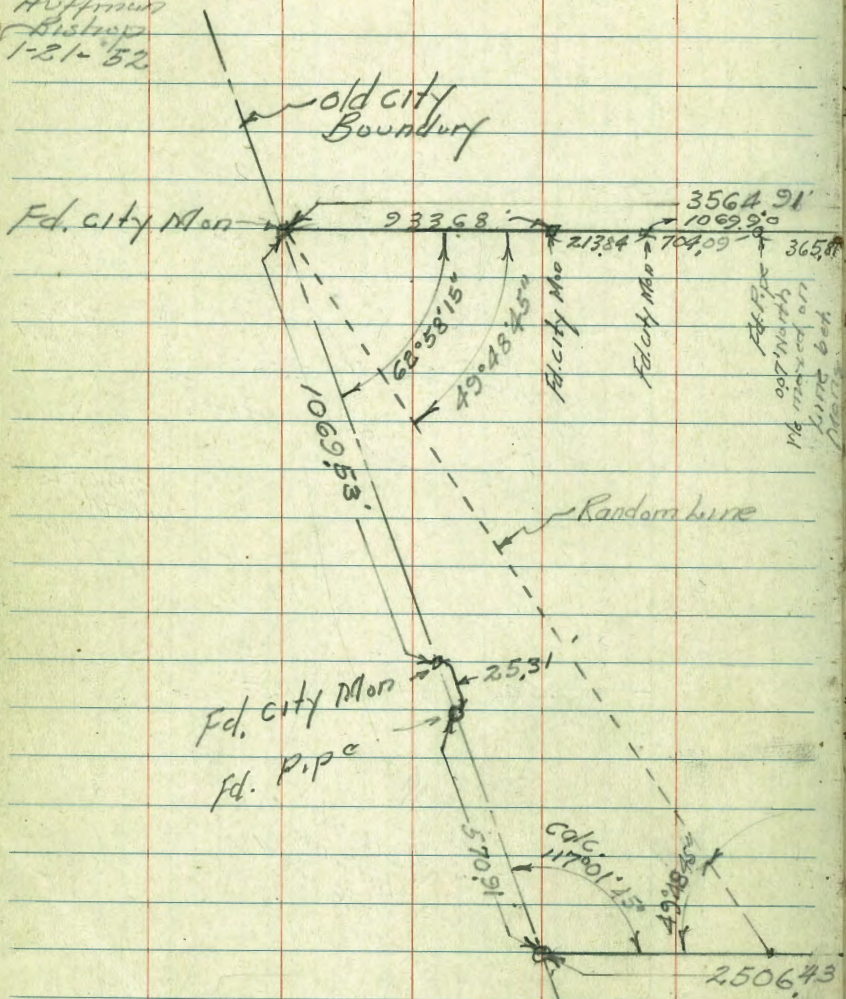 Huffman
Bishop
1-21-'52
old city
Boundury
Fd. city Mon
3564.91'
933.68'
1069.90
213.84
704.09
365.81
Fd. city Mon
Fd. city Mon
Fd. P.pe
007' North
marked on
Line bet.
62°58'15"
49°48'45"
1069.53'
Random Line
25.31
Fd. city Mon
Fd. p.pe
570.91
calc.
117°01'45"
49°48'45"
2506.43